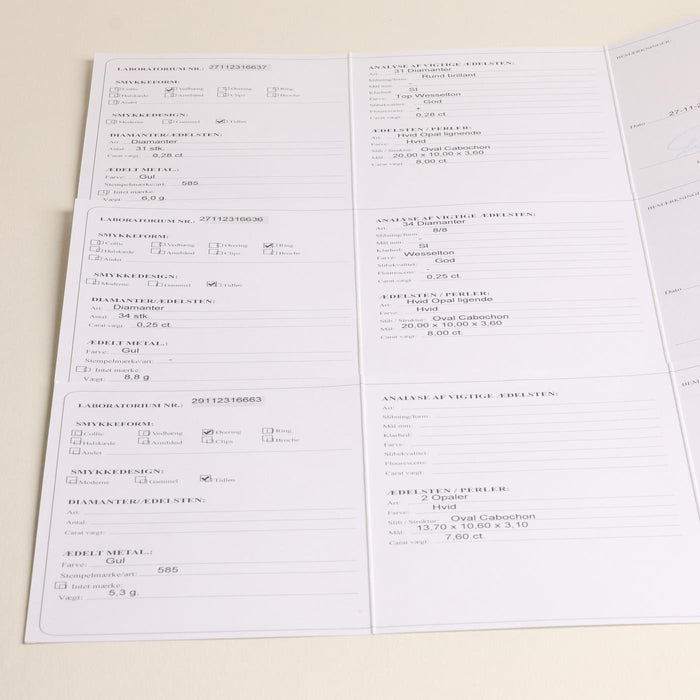 LABORATORIUM NR.: 27112316637
SMYKKEFORM:
Collie Vedhæng Ørering Ring
Halskæde Armbånd Clips Broche
Andet
SMYKKEDESIGN:
Moderne Gammel Tidløs
DIAMANTER/ÆDELSTEN:
Art: Diamanter
Antal: 31 stk.
Carat vægt: 0,28 ct.
ÆDELT METAL:
Farve: Gul
Stempelmærke/art: 585
Intet mærke:
Vægt: 6,0 g.
ANALYSE AF VIGTIGE ÆDELSTEN:
Art: 31 Diamanter
Slibning/form: Rund brillant
Mål mm: -
Klarhed: SI
Farve: Top Wesselton
Slibekvalitet: God
Fluorescens: -
Carat vægt: 0,28 ct.
ÆDELSTEN / PERLER:
Art: Hvid Opal lignende
Farve: Hvid
Slib / Struktur: Oval Cabochon
Mål: 20,00 x 10,00 x 3,60
Carat vægt: 8,00 ct.
BEMÆRKNINGER:
Dato 27-11-2
LABORATORIUM NR.: 27112316636
SMYKKEFORM:
Collie Vedhæng Ørering Ring
Halskæde Armbånd Clips Broche
Andet
SMYKKEDESIGN:
Moderne Gammel Tidløs
DIAMANTER/ÆDELSTEN:
Art: Diamanter
Antal: 34 stk.
Carat vægt: 0,25 ct.
ÆDELT METAL.:
Farve: Gul
Stempelmærke/art: -
Intet mærke:
Vægt: 8,8 g.
ANALYSE AF VIGTIGE ÆDELSTEN:
Art: 34 Diamanter
Slibning/form: 8/8
Mål mm: -
Klarhed: SI
Farve: Wesselton
Slibekvalitet: God
Fluorescens: -
Carat vægt: 0,25 ct.
ÆDELSTEN / PERLER:
Art: Hvid Opal ligende
Farve: Hvid
Slib / Struktur: Oval Cabochon
Mål: 20,00 x 10,00 x 3,60
Carat vægt: 8,00 ct.
BEMÆRKNINGER
Dato
LABORATORIUM NR.: 29112316663
SMYKKEFORM:
Collie Vedhæng Ørering Ring
Halskæde Armbånd Clips Broche
Andet
SMYKKEDESIGN:
Moderne Gammel Tidløs
DIAMANTER/ÆDELSTEN:
Art:
Antal:
Carat vægt:
ÆDELT METAL.:
Farve: Gul
Stempelmærke/art: 585
Intet mærke:
Vægt: 5,3 g.
ANALYSE AF VIGTIGE ÆDELSTEN:
Art:
Slibning/form:
Mål mm:
Klarhed:
Farve:
Slibekvalitet:
Fluorescens:
Carat vægt:
ÆDELSTEN / PERLER:
Art: 2 Opaler
Farve: Hvid
Slib / Struktur: Oval Cabochon
Mål: 13,70 x 10,60 x 3,10
Carat vægt: 7,60 ct.
BEMÆR